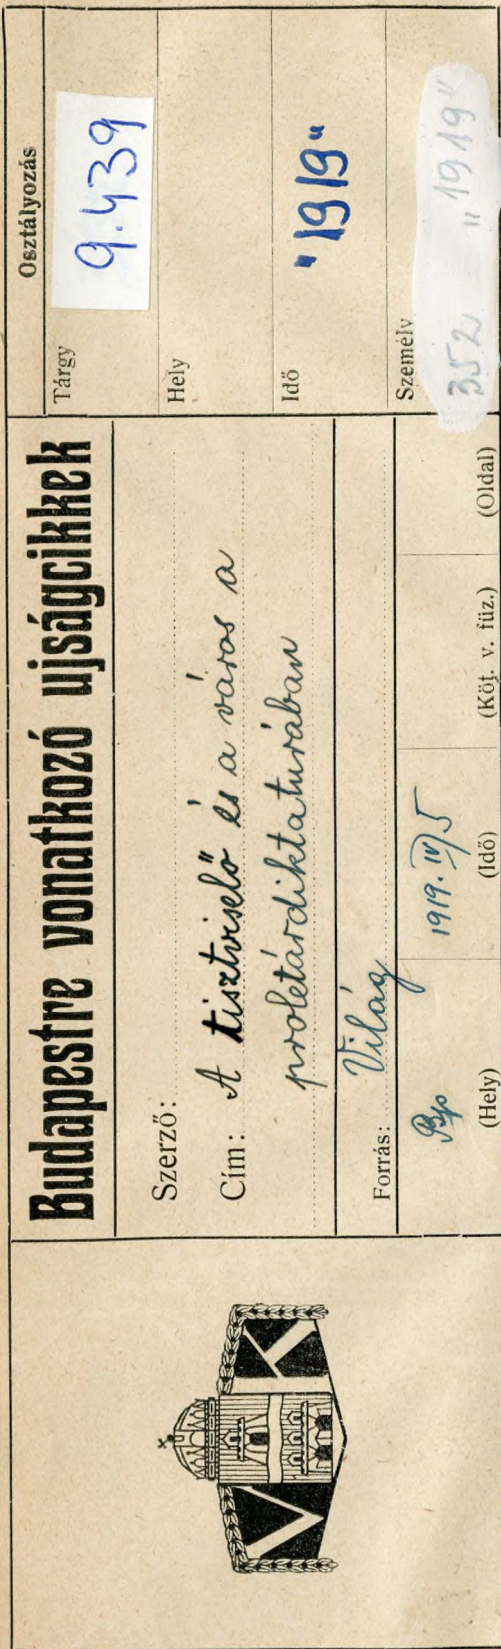 V K
Budapestre vonatkozó ujságcikkek
Szerző:
Cím: A tisztviselő és a város a
proletárdiktaturában
Forrás: Világ
Bp 1919. IV/5
(Hely) (Idő) (Köt. v. füz.) (Oldal)
Osztályozás
Tárgy 9.439
Hely
Idő "1919"
Személy
352 „1919"